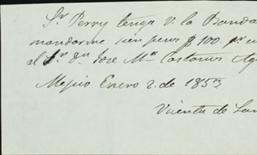 Sr Perry tenga V. la Bondad
mandarme cien pesos $ 100. pr
al Sr. Dn. Jose Ma Castaños
Mejico Enero 2. de 1853
Vicente de